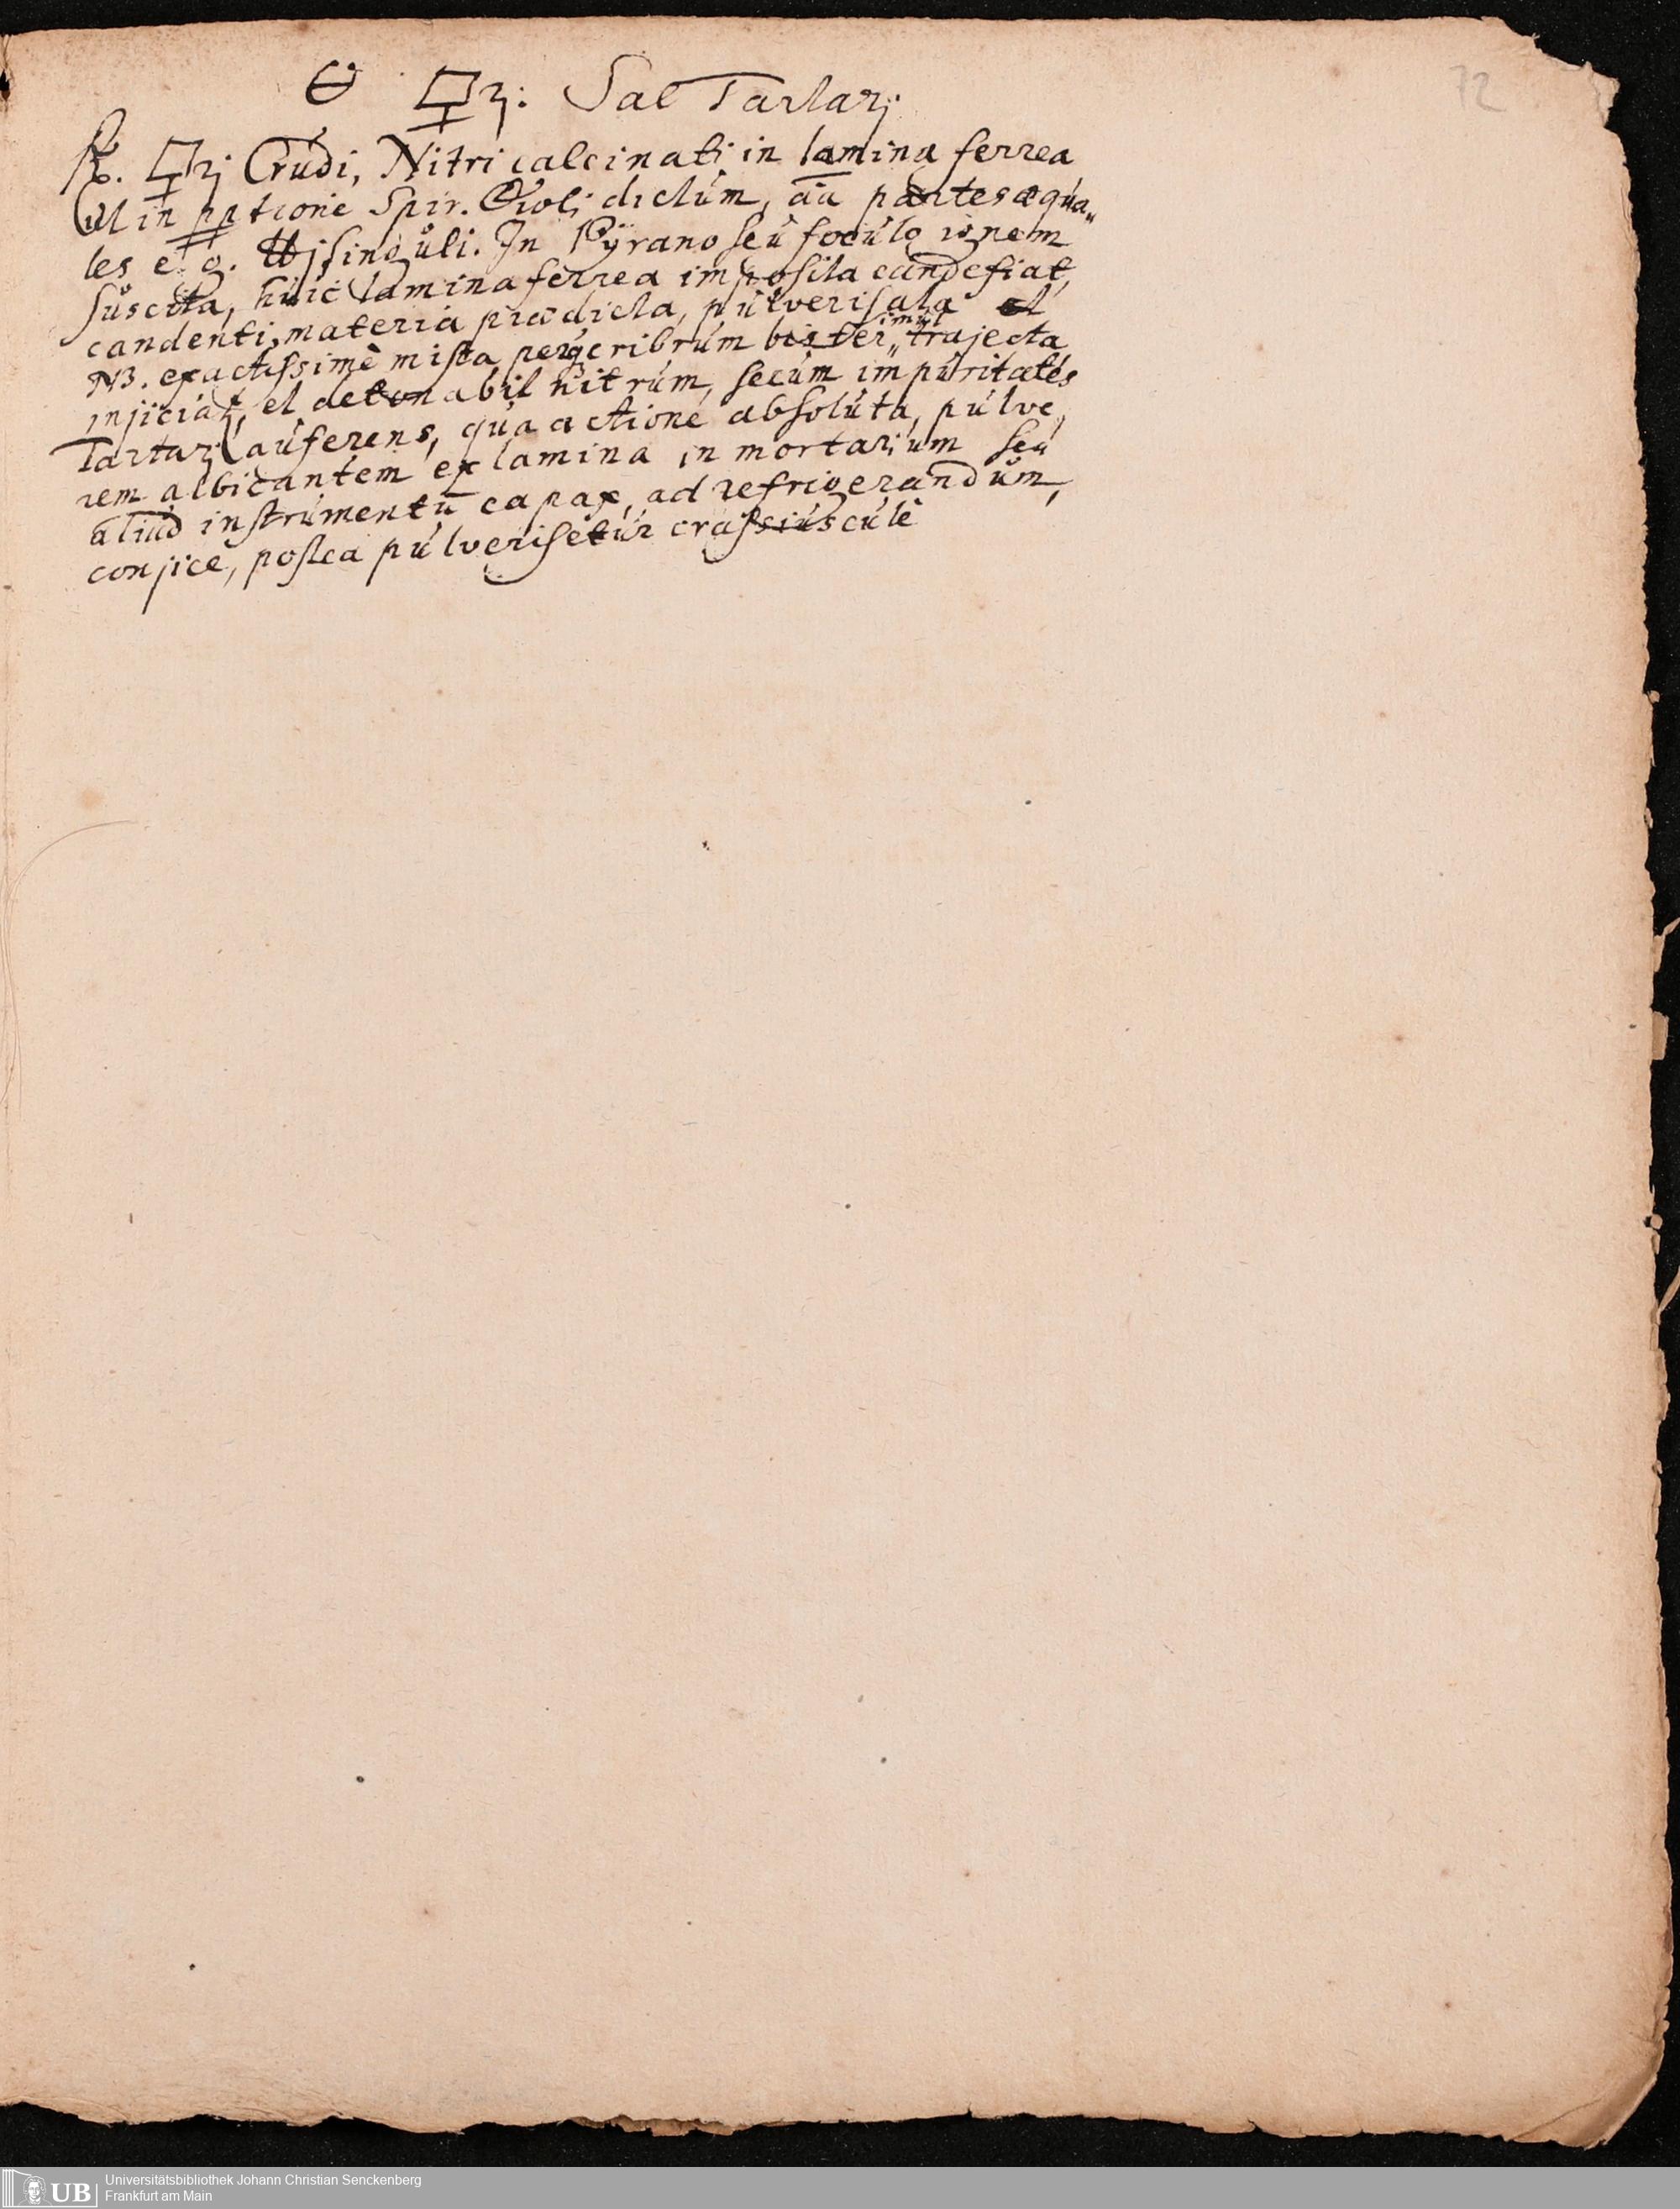 🜔 🜿ri: Sal Tartari
72
℞. 🜿ri Crudi, Nitri calcinati in lamina ferrea
ut in pptione Spir. dictum, āā partes æqua„
les e. g. ℔j singuli. In Pÿrano seu foculo ignem
suscita, huic lamina ferrea imposita candefiat,
candenti, materia prædicta, pulverisata et
NB. exactissimè mista per cribrum bis ter„imul„ trajecta
injiciatr, et detonabit nitrum, secum impuritates
Tartari auferens, qua actione absoluta, pulve„
rem albicantem ex lamina in mortarium seu
aliud instrumentū capax, ad refrigerandum,
conjice, postea pulverisetur crassiusculè
UB Universitätsbibliothek Johann Christian Senckenberg
Frankfurt am Main